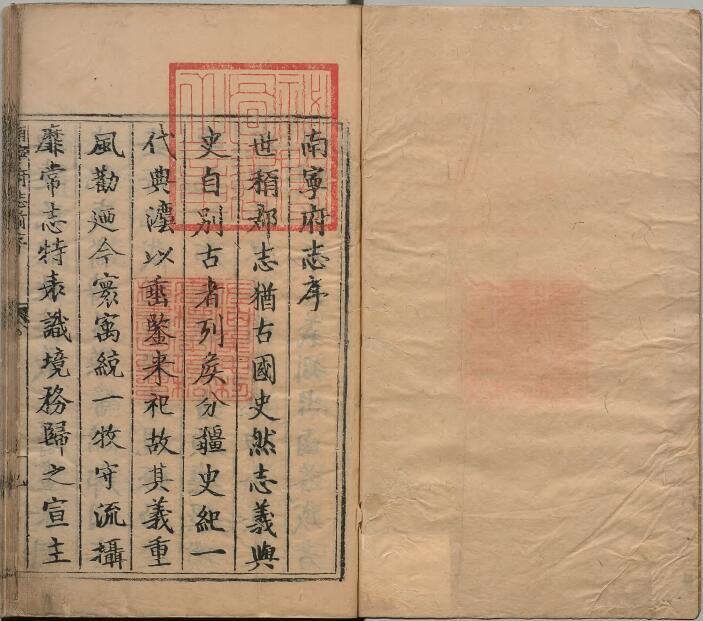 南寧府志序
世稱郡志猶古國史然志義與
史自別古者列侯分疆史紀一
代典灋以垂鍳来祀故其義重
風勸廼今寰寓統一牧守流攝
靡常志特表識境務歸之宣主
南寧府志前序